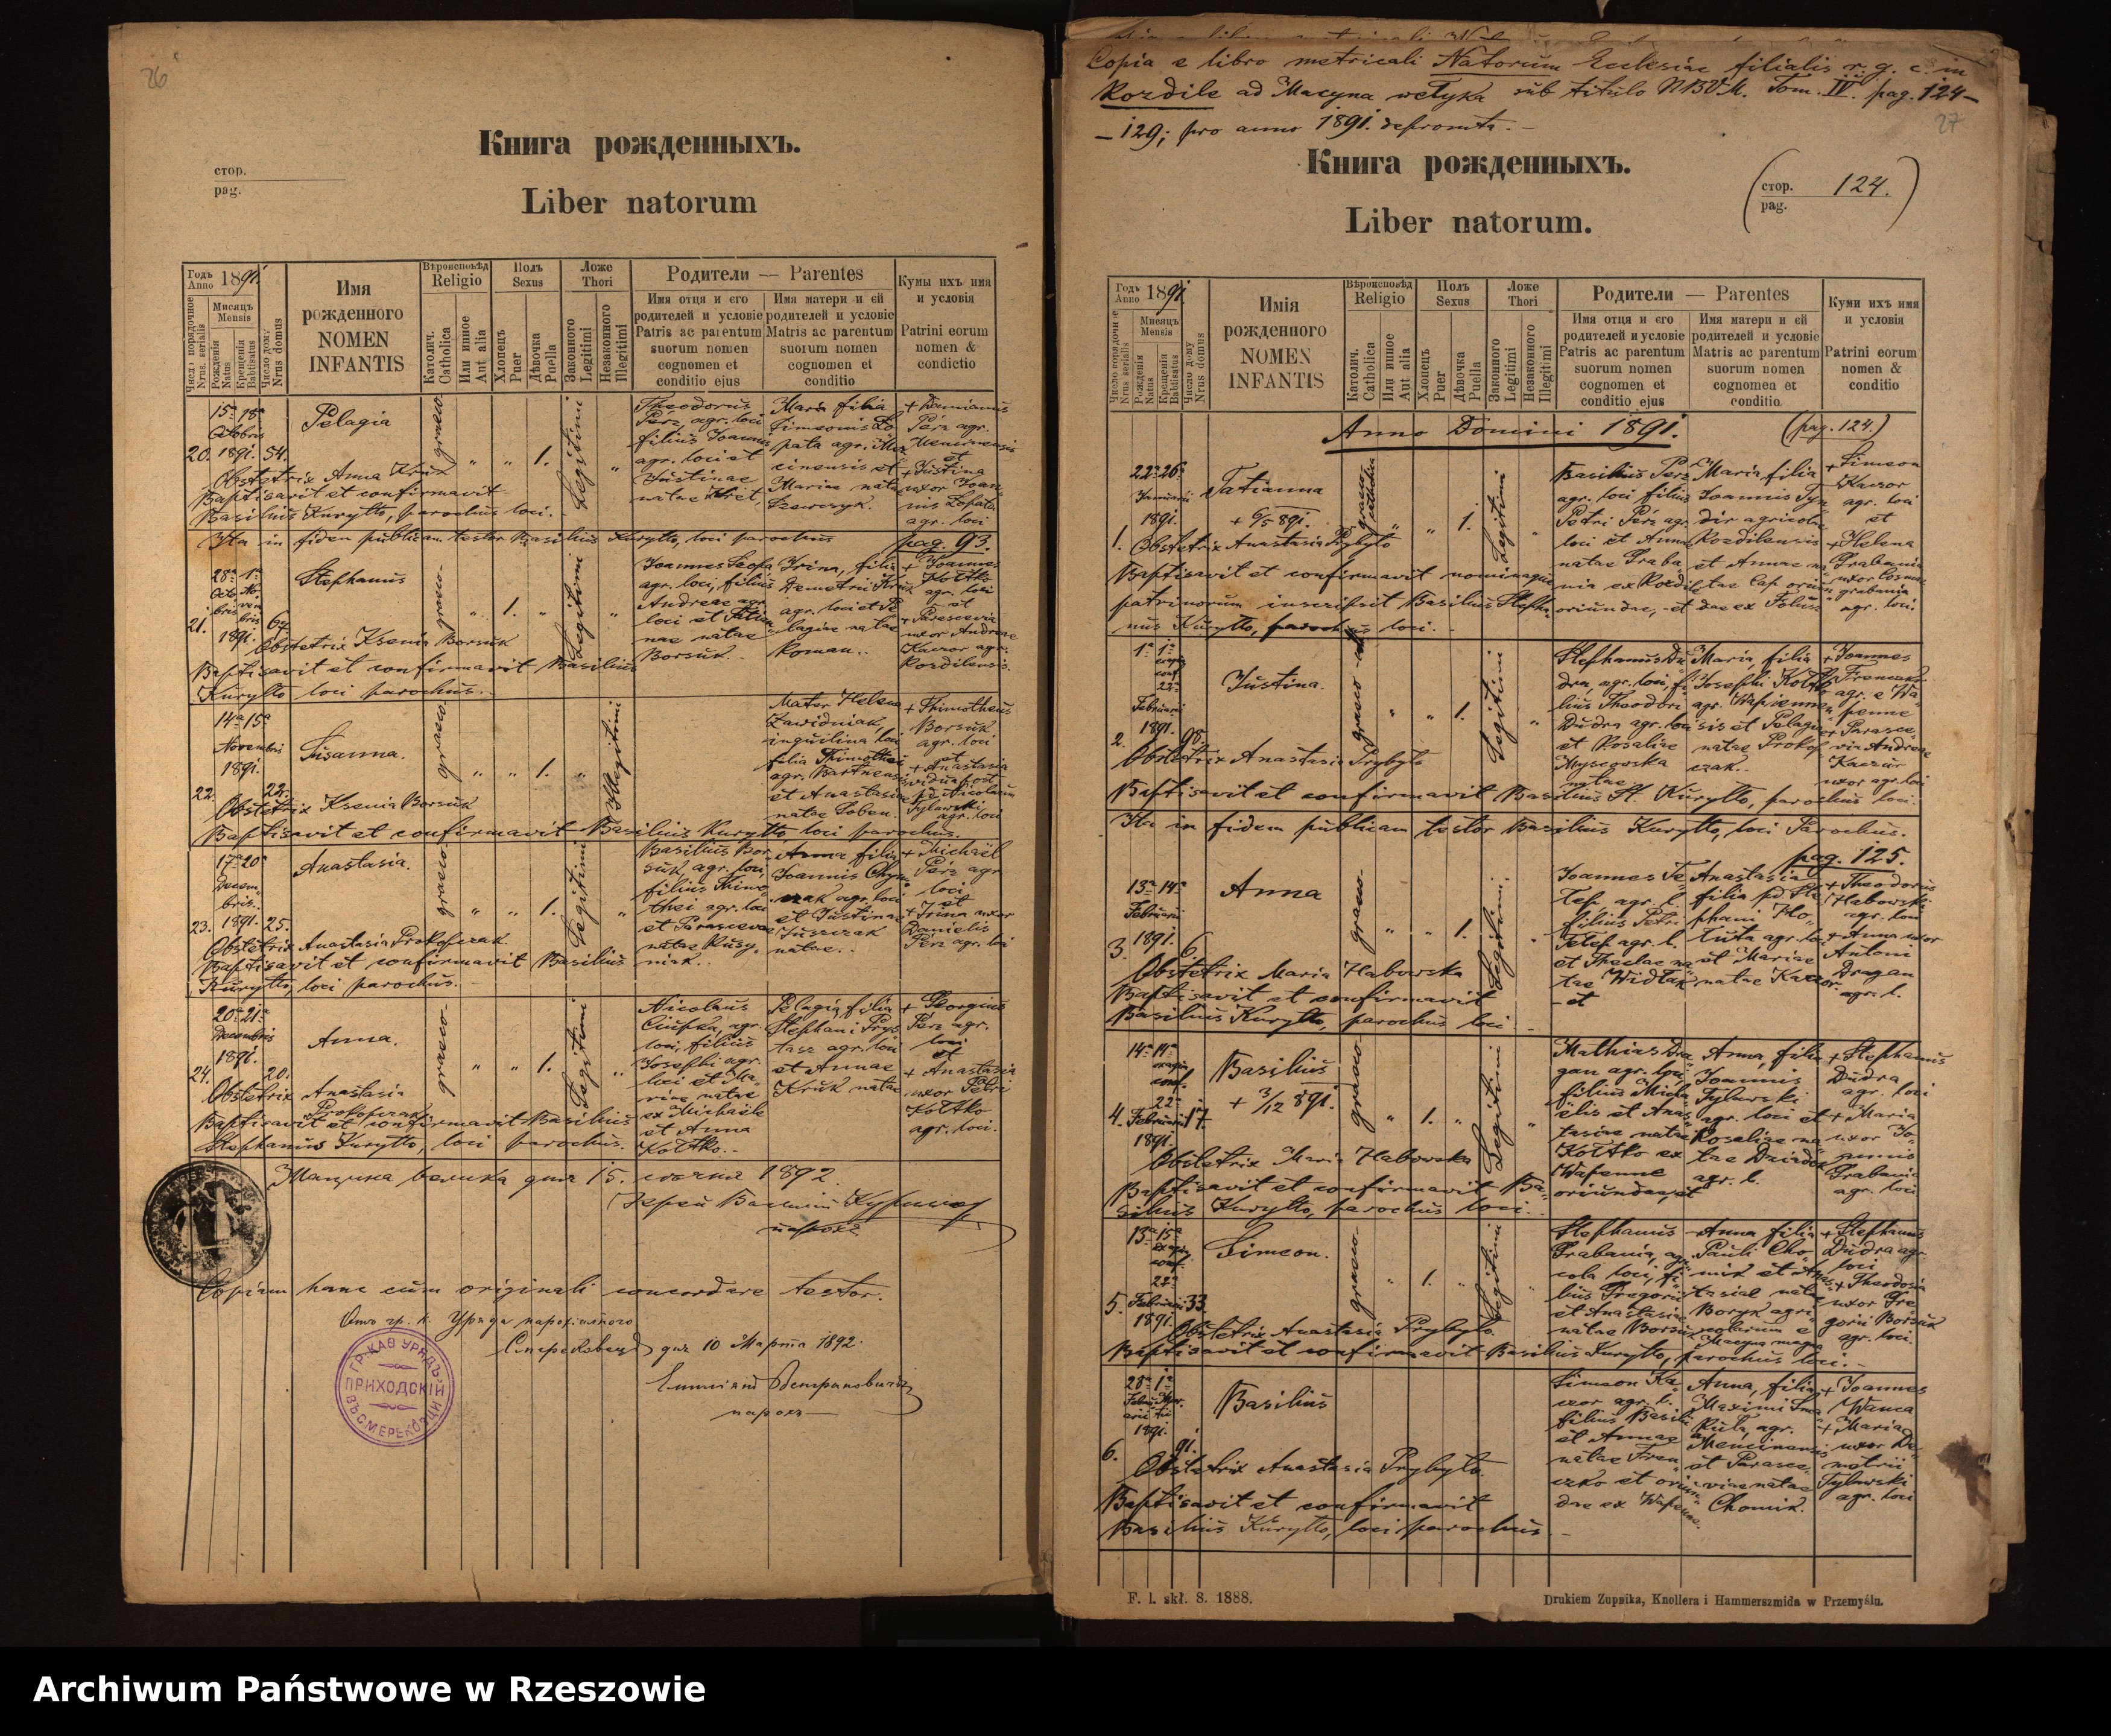 26
Книга рожденныхъ.
стор.
pag.
Liber natorum
Годъ Anno 1891.
Число порядочное Nrus. serialis
Мисяцъ Mensis
Рождения Natus
Крещения Babtisatus
Число дому Nrus domus
Имя рожденного NOMEN INFANTIS
Вѣроисповѣд Religio
Католич. Catholica
Или инное Aut alia
Полъ Sexus
Хлопецъ Puer
Дѣвочка Puella
Ложе Thori
Законного Legitimi
Незаконного Illegitimi
Родители — Parentes
Имя отця и єго родителей и условіє Patris ac parentum suorum nomen cognomen et conditio ejus
Имя матери и єй родителей и условіє Matris ac parentum suorum nomen cognomen et conditio
Кумы ихъ имя и условія
Patrini eorum nomen & condictio
20. 15ª 18ª Octobris 1891. 54.
Pelagia
graeco
" " 1. Legitimi "
Theodorus Perz, agr. loci filius Joannis agr. loci et Justinae natae
Maria filia Simeonis Lopata agr. Mencinensis et Mariae nata Szewczyk.
+ Damianus Perz agr. Mencinensis et + Justina uxor Joannis Lopata agr. loci
Obstetrix Anna Kruk
Baptisavit et confirmavit
Basilius Kuryłło, parochus loci.
Ita in fidem publicam testor Basilius Kuryłło, loci parochus
pag. 93.
21. 28ª 1ª Octobris Novembris 1891.
Stephanus
graeco
" 1. " Legitimi "
Joannes agr. loci, filius Andreae agr. loci et natae Borsuk.
Irina, filia Demetrii Kruk agr. loci et Pelagiae natae Roman.
+ Joannes Kołtko agr. loci et + Parascevia uxor Andreae Kaczor agr. Rozdilensis.
Obstetrix Ksenia Borsuk
Baptisavit et confirmavit Basilius
Kuryłło loci parochus.
22. 14ª 15ª Novembris 1891. 22.
Susanna.
graeco
" " 1. " Illegitimi
Mater Helena Zawidniak, inquilina loci filia Thimothei agr. Bartnensis et Anastasiae natae
+ Thimotheus Borsuk agr. loci et + Anastasia vidua post Nicolaum Tylawski agr. loci
Obstetrix Ksenia Borsuk
Baptisavit et confirmavit Basilius Kuryłło loci parochus.
23. 17ª 20ª Decembris. 1891. 25.
Anastasia.
graeco
" " 1. Legitimi "
Basilius Borsuk, agr. loci, filius Thimothei agr. loci et Parascevae natae
Anna filia Joannis agr. loci et Justinae Juszczak natae.
+ Michaël Perz agr. loci et + Irina uxor Danielis Perz agr. loci
Obstetrix Anastasia Prokopczak.
Baptisavit et confirmavit Basilius
Kuryłło, loci parochus.
24. 20ª 21ª Decembris 1891. 20.
Anna.
graeco
" " 1. Legitimi "
Nicolaus Ciupka, agr. loci, filius Josephi agr. loci et Mariae natae ex Michaële et Anna Kołtko.
Pelagia, filia Stephani agr. loci et Annae Kruk natae
+ Georgius Perz agr. loci et + Anastasia uxor Petri Kołtko agr. loci.
Obstetrix Anastasia Prokopczak
Baptisavit et confirmavit Basilius
Stephanus Kuryłło, loci parochus.
Мацина велика дня 15. 1892.
Іерей Василій Курилло
парохъ
Copiam hanc cum originali concordare testor.
Отъ гр. к. Уряда парохіяльного
дня 10 Марта 1892.
парохъ
ГР. КАѲ. УРЯДЪ ПРИХОДСКІЙ ВЪ СМЕРЕКОВЦИ
Copia e libro metricali Natorum Ecclesiae filialis r. g. c. in
Rozdile ad Macyna wełyka sub titulo NBVM. Tom. IV. pag. 124–
– 129; pro anno 1891. depromta. –
27
Книга рожденныхъ.
стор. pag. 124.
Liber natorum.
Годъ Anno 1891
Число порядочное Nrus serialis
Мисяцъ Mensis
Рождения Natus
Крещения Babtisatus
Число дому Nrus domus
Имія рожденного NOMEN INFANTIS
Вѣроисповѣд Religio
Католич. Catholica
Или инное Aut alia
Полъ Sexus
Хлопецъ Puer
Дѣвочка Puella
Ложе Thori
Законного Legitimi
Незаконного Illegitimi
Родители — Parentes
Имя отця и єго родителей и условіє Patris ac parentum suorum nomen cognomen et conditio ejus
Имя матери и єй родителей и условіє Matris ac parentum suorum nomen cognomen et conditio
Куми ихъ имя и условія
Patrini eorum nomen & conditio
Anno Domini 1891.
(pag. 124.)
1. 22ª 26ª Januarii 1891.
Tatianna
+ 6/5 891.
graeco catholica
" " 1. Legitimi "
Basilius Perz agr. loci filius Petri Perz agr. loci et Anna natae Graba
Maria, filia Joannis agricolae Rozdilensis et Annae
+ Simeon Kaczor agr. loci et + Helena Grabania uxor Cosmae Grabania agr. loci.
Obstetrix Anastasia Prybyło
Baptisavit et confirmavit nominaque
patrinorum inscripsit Basilius Stepha-
nus Kuryłło, parochus loci.
2. 1ª 1ª 22ª Februarii 1891. 98.
Justina.
graeco
" " 1. Legitimi "
Stephanus Dudra, agr. loci, filius Theodori Dudra agr. loci et Rosaliae Myscowska natae
Maria, filia Josephi Kołtko agr. Wapiennensis et Pelagiae natae Prokopczak.
+ Joannes Frenczko agr. e Wapienne + Parascevia Andreae Kaczur uxor agr. loci
Obstetrix Anastasia Prybyło
Baptisavit et confirmavit Basilius St. Kuryłło, parochus loci.
Ita in fidem publicam testor Basilius Kuryłło, loci Parochus.
pag. 125.
3. 13ª 14ª Februarii 1891. 6
Anna
graeco
" " 1. Legitimi "
Joannes Telep agr. l. filius Petri Telep agr. l. et Theclae natae Widłak et
Anastasia filia pd. Stephani agr. loci et Mariae natae Kaczor
+ Theodorus Habowski agr. loci + Anna uxor Antoni Dragan agr. l.
Obstetrix Maria Habowska
Baptisavit et confirmavit
Basilius Kuryłło, parochus loci
4. 14ª 14ª 22ª Februarii 1891. 17
Basilius
+ 3/12 891.
graeco
" 1. " Legitimi "
Mathias Dragan agr. loci filius Michaëlis et Anastasiae natae Kołtko ex Wapenne oriundae, et
Anna, filia Joannis Tylawski agr. loci et Rosaliae natae Dziadik agr. l.
+ Stephanus Dudra agr. loci + Maria uxor Joannis Grabania agr. loci
Obstetrix Maria Habowska
Baptisavit et confirmavit Ba-
silius Kuryłło, parochus loci.
5. 13ª 15ª 22ª Februarii 1891. 33.
Simeon.
graeco
" 1. " Legitimi
Stephanus Grabania, agricola loci, filius Gregorii et Anastasiae natae Borsuk
Anna filia Pauli Chomik et Anastasiae natae Boryk agricolarum e Macyna magna
+ Stephanus Dudra agr. loci + Theodosia uxor Gregorii Borsuk agr. loci.
Obstetrix Anastasia Prybyło.
Baptisavit et confirmavit Basilius Kuryłło, parochus loci.
6. 28ª 1ª Februarii Martii 1891. 91.
Basilius
Simeon Kaczor agr. l. filius Basilii et Annae natae Frenczko et oriundae ex Wapenne.
Anna, filia Maximi agr. Mencinensis et Parasceviae natae Chomik.
+ Joannes Wanca + Maria uxor Demetrii Tylawski agr. loci
Obstetrix Anastasia Prybyło.
Baptisavit et confirmavit
Basilius Kuryłło, loci parochus.
F. l. skł. 8. 1888.
Drukiem Zupnika, Knollera i Hammerszmida w Przemyślu.
Archiwum Państwowe w Rzeszowie